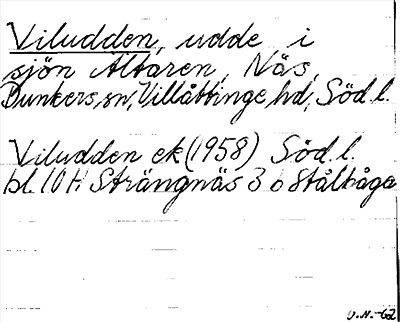 Viludden, udde i
sjönÄltaren, Näs,
Dunkers sn, Villåttinge hd, Söd. l.
Viludden ek (1958) Söd. l.
bl. 10 H Strängnäs 3 o Stålboga
O.N.-62